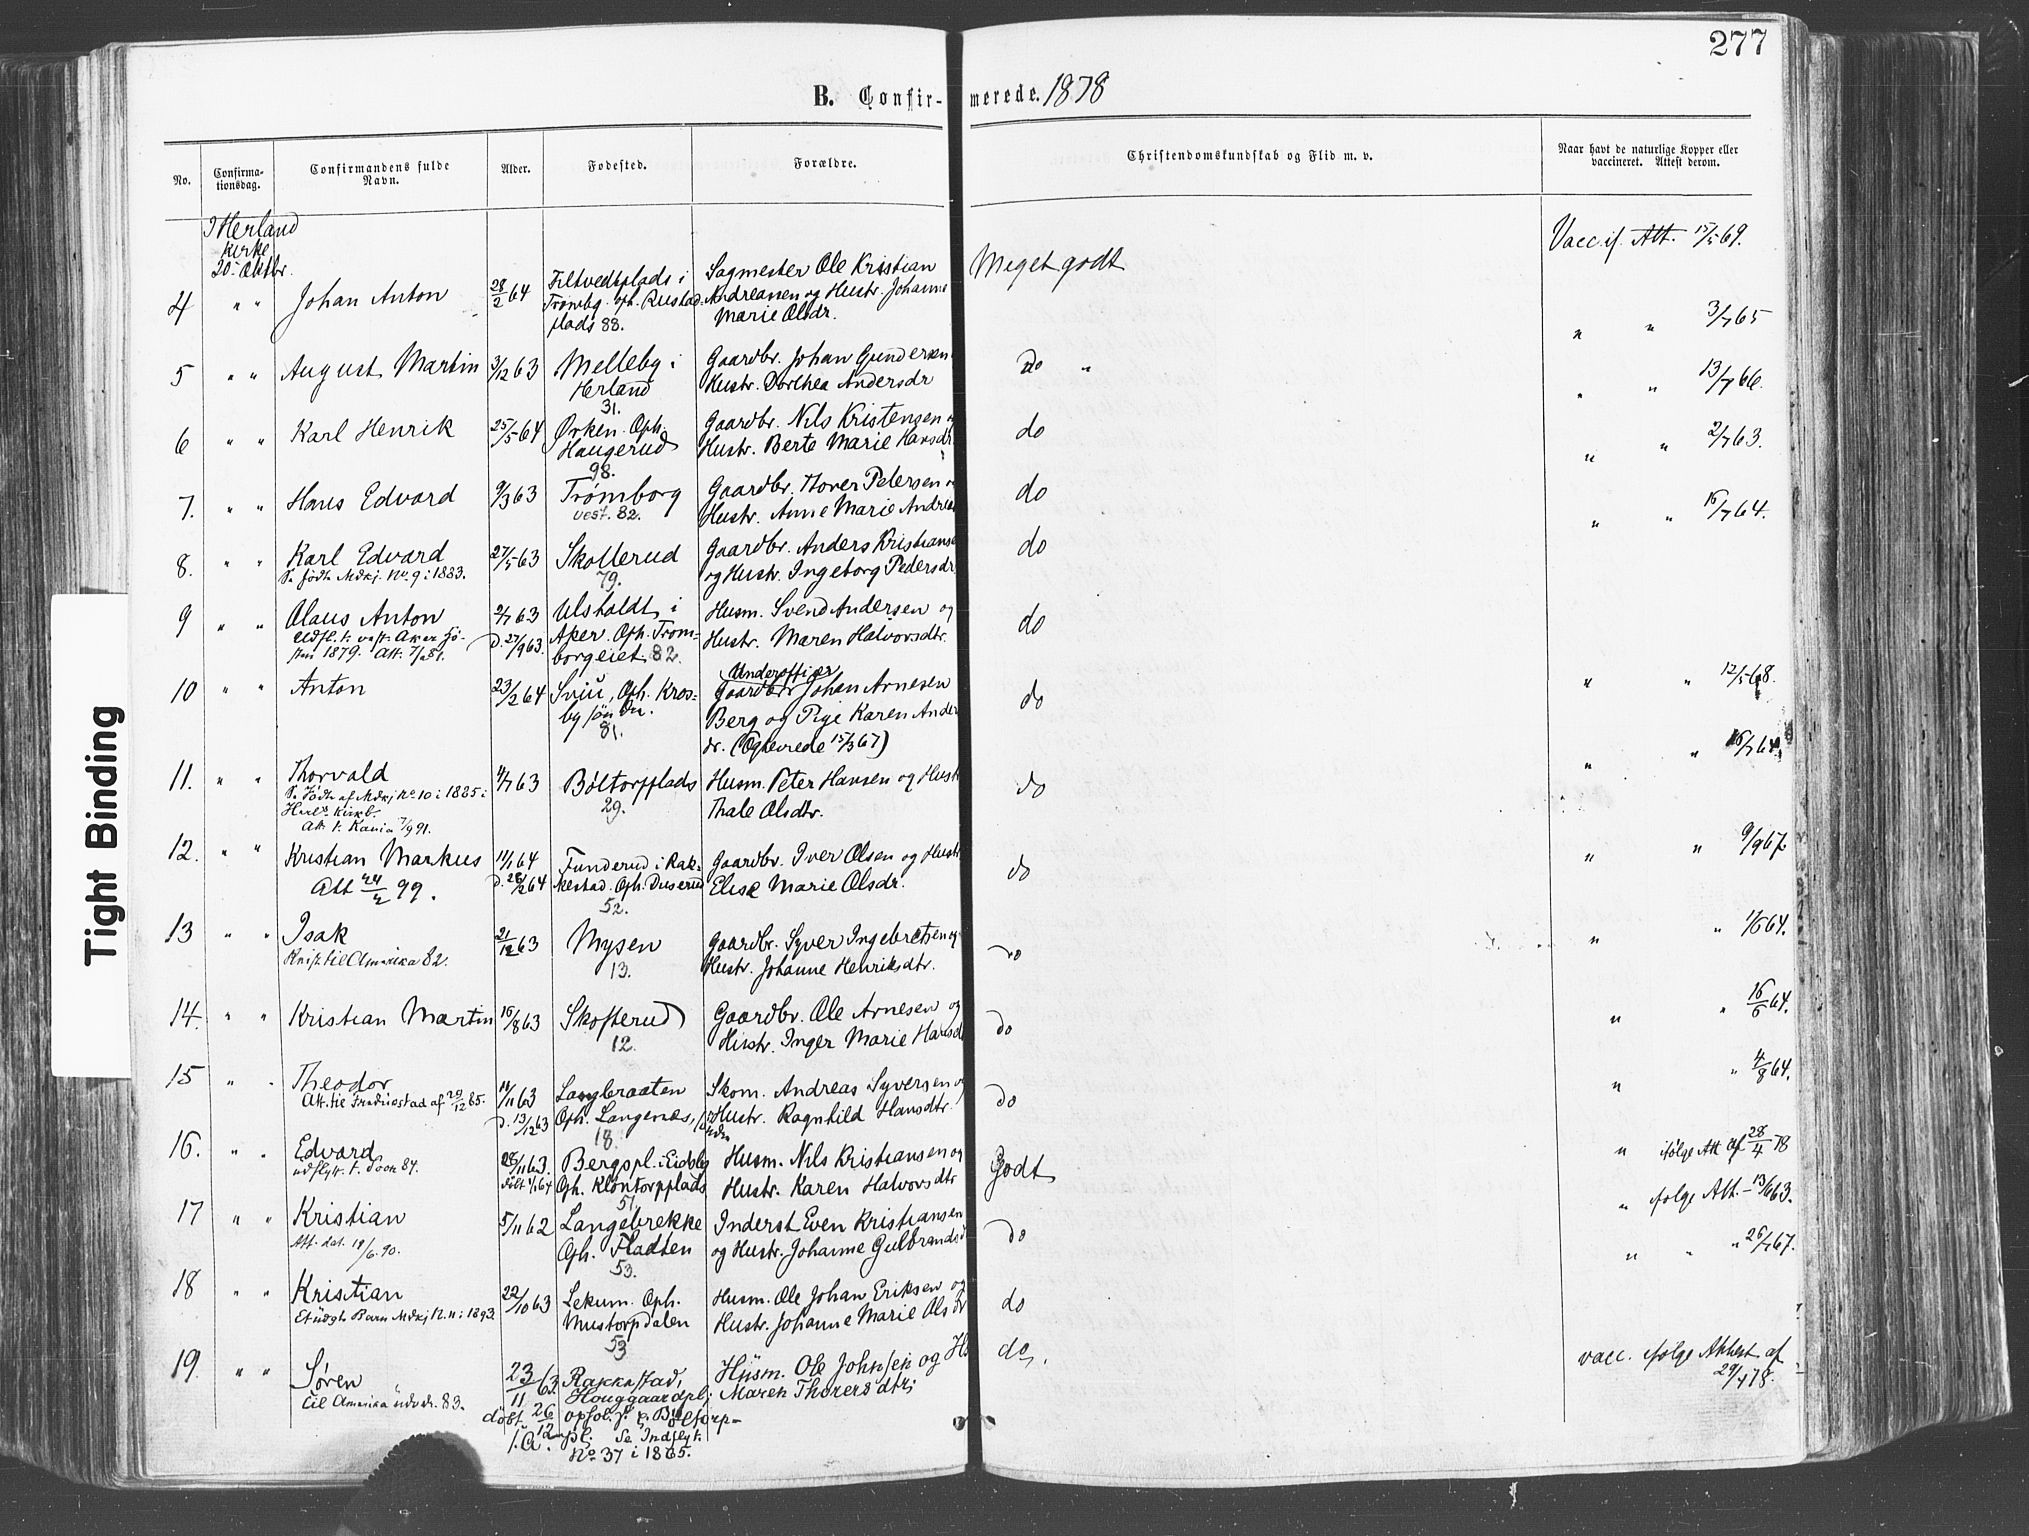 277
B. Confir- merede. 1878
No.
Confirma-
tionsdag.
Confirmandens fulde
Navn.
Alder.
Fødested.
Forældre.
Christendomskundskab og Flid m. v.
Naar havt de naturlige Kopper eller
vaccineret. Attest derom.
I Herland
Kirke
20. Oktbr.
4 " " Johan Anton 28/2 64
Filtvedtplads i
Trømbg. Oph. Rustad-
plads 88.
Sagmester Ole Kristian
Andreasen og Hustr. Johanne
Marie Olsdr.
Meget godt
Vacc. if. Att. 15/5 69.
5 " " August Martin 3/12 63
Melleby i
Herland
31.
Gaardbr. Johan Gundersen
Hustr. Dorthea Andersdr
do "
" " 3/7 65
6 " " Karl Henrik 25/5 64
Ørken. Oph.
Haugerud
98.
Gaardbr. Nils Kristensen o
Hustr. Berte Marie Hansdr.
do
" " 13/7 66.
7. " " Hans Edvard 9/3 63
Trømborg
vest. 82.
Gaardbr. Thover Petersen o
Hustr. Anne Marie Andrea
do
" " 2/7 63.
8. " " Karl Edvard 27/5 63
Se fødte Mdkj. No. 9 i 1883.
Skollerud
79.
Gaardbr. Anders Kristianse
og Hustr. Ingeborg Pedersdr
do
" " 16/7 64.
9 " " Olaus Anton 2/7 63
Udfl. t. vest. Aker Hø-
sten 1879.
D. 27/9 63.
Ulsholdt i
Aker. Oph. Trøm-
borgeiet 82.
Husm. Svend Andersen og
Hustr. Maren Halvorsdtr.
do
10 " " Anton 23/2 64
Sviu, Oph. Kros-
by søndre.
81.
Underofficer
Gaardbr Johan Arnesen
Berg og Pige Karen Ander
dr. (Ægtevirede 15/3 67)
do
" " 12/5 68.
11. " " Thorvald 4/7 63
Se Fødte af Mdkj No. 10 i 1885 i
Herl. Kirkb.
Bøltorpplads
29.
Husm. Peter Hansen og Hust
Thale Olsdtr.
do
" " 16/7 64.
12. " " Kristian Markus 11/1 64
Att 24/2 99.
D. 28/2 64
Funderud i Rak-
kestad. Oph. Duserud
52.
Gaardbr. Iver Olsen og Hustr
Elise Marie Olsdr.
do
" " 9/9 67
13 " " Isak 21/12 63
til Amerika 82.
Mysen
13.
Gaardbr. Syver Ingebretsen og
Hustr. Johanne Henriksdtr.
do
" " 1/6 64.
14. " " Kristian Martin 16/8 63
Skofterud
12.
Gaardbr. Ole Arnesen og
Hustr. Inger Marie Hansd
do
" " 16/6 64.
15 " " Theodor 14/11 63
Att. til Fredriksstad af 20/12 85.
D. 13/12 63
Langbraaten
Oph. Langenæs,
18.
Skom. Andreas Syversen o
Hustr. Ragnhild Hansdtr.
do
" " 4/8 64.
16. " " Edvard 28/11 63.
udflytt. t. Moss 87.
døbt 1/1 64
Bergspl. i Eidsbg
Oph. Klontorpplads
51.
Husm. Nils Kristiansen og
Hustr. Karen Halvorsdtr
Godt
" ifølge Att af 28/4 78
17 " " Kristian 5/11 62
Att. dat. 19/6. 90.
Langebrekke
Oph. Fladsten
53.
Inderst Even Kristiansen
og Hustr. Johanne Gulbrandsd
do
" ifølge Att. - 13/6 63.
18 " " Kristian 22/10 63
Et uægte Barn Mdkj N. 11 i 1893.
Lekum. Oph.
Mustorpdalen
53
Husm. Ole Johan Eriksen og
Hustr. Johanne Marie Olsdr
do
" " " 26/7 67.
19. " " Søren 23/11 63.
til Amerika udvdr. 83.
døbt 26/12
s. A.
Rakkestad,
Houggaardpl;
Bøltorp-
pl. Se Indflyt.
No 37 i 1865.
Husm. Ole Johnsen og H
Maren Thorersdtr;
do.
vacc. ifølge Attest af
29/4 78.
Tight Binding